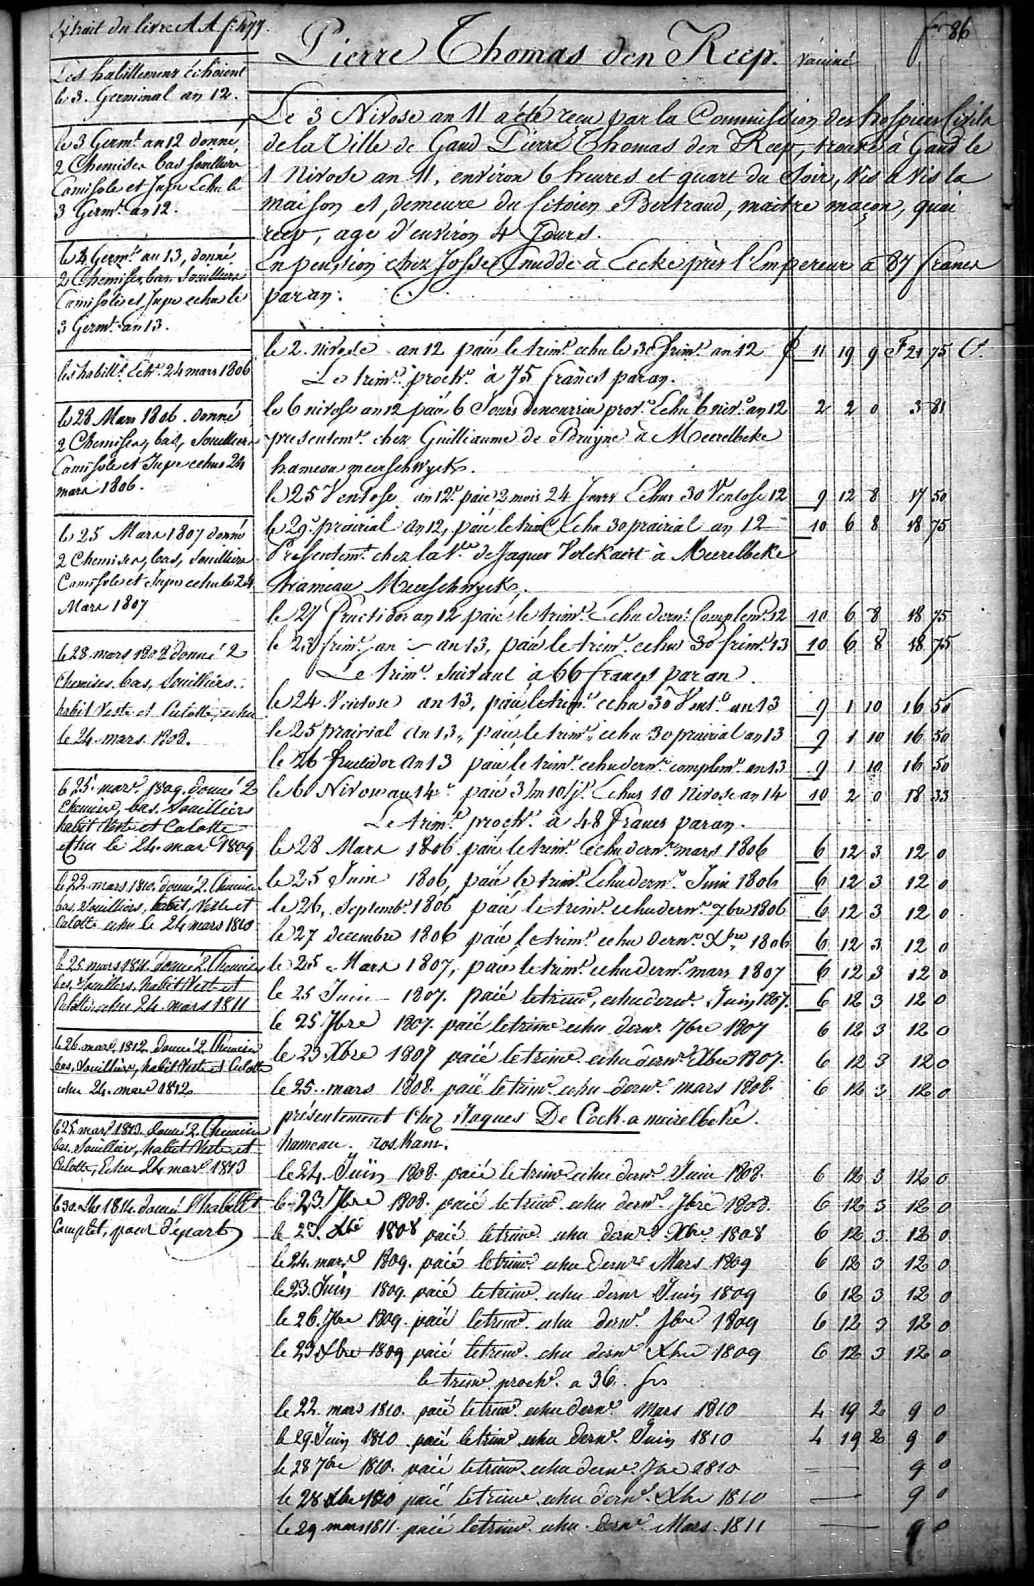 Extrait du livre AA f: 477.
fo 86
Pierre Thomas den Reep. vacciné
Les habillemens échoient
le 3. Germinal an 12.
le 3 Germl. an 12 donné,
2 Chemises bas souilliers
Camisole et Jupe Echu le
3 Germl. an 12.
le 4 Germl. an 13, donné
2 Chemises, bas, Souilliers
Camisoles et Jupe echu le
3 Germl. an 13.
les habillts. Echt. 24 mars 1806
le 28 Mars 1806. Donné
2 Chemises, bas, Souilliers
Camisole et Jupe echus 24
mars 1806.
le 25 Mars 1807 donné
2 Chemises, bas, Souilliers
Camisole et Jupe echu le 24
Mars 1807
le 28 mars 1808 donné 2
Chemises. bas, Souilliers.
habit Veste et Culotte, echu
le 24 mars. 1808.
le 25. mars. 1809. donné 2
Chemises, bas. Souilliers
habit Veste et Culotte
echu le 24. mars 1809
le 22. mars 1810. donné 2. Chemises
bas. Souilliers, habit, Veste et
Culotte echu le 24 mars 1810
le 25 mars 1811. donné 2. Chemises
bas, Souilliers, habit Veste et
Culotte echu 24. mars 1811
le 26. mars. 1812. donné 2. Chemises
bas, Souilliers, habit Veste et Culotte
echu 24. mars 1812
le 25. mars 1813. donné 2. Chemises
bas. Souilliers, habit Veste et
Culotte, Echu 24 mars 1813
le 30. 1814. donné l'habillt
Complet, pour départ
Le 3 Nivose an 11 a été recu par la Commission des hospices Civils
de la Ville de Gand Pierre Thomas den Reep, trouvé à Gand le
1 Nivose an 11, environ 6 heures et quart du Soir, vis à vis la
maison et, demeure du Citoien Bertraud, maitre maçon, quai
reep, agé d'environ 4 Jours.
En pension chez Josse Cnudde à Eecke près l'Empereur à 87 francs
par an.
le 2. nivose an 12 paié le trimt. echu le 30 frimt. an 12 11 19 9 F 21 75 Ct.
Le trimt. procht. à 75 francs par an.
le 6 nivose an 12 paié 6 Jours de nourriture provt. Echu 6 nivt. an 12 2 2 0 3 81
presentemt. chez Guilliaume de Bruyne à Meerelbeke
hameau meerschwyck.
le 25 Ventose an 12. paié 2 mois 24 Jours Echus 30 Ventose 12 9 12 8 17 50
le 29. prairial an 12, paié le trimt. echu 30 prairial an 12 10 6 8 18 75
Presentemt. chez la Ve. de Jaques Volckaert à Meerelbeke
hameau Meerschwyck,
le 27 Fructidor an 12 paié, le trimt. Echu dernr. Complemt. 12 10 6 8 18 75
le 23 frimt. an an 13, paié le trimt. echu 30 frimt. 13 10 6 8 18 75
Le trimt. suivant à 66 francs par an.
le 24 Ventose an 13, paié le trimt. echu 30 Vent. an 13 9 1 10 16 50
le 25 prairial an 13, paié le trimt. echu 30 prairial an 13 9 1 10 16 50
le 26 fructidor an 13 paié le trimt. echu dernr. complemt. an 13 9 1 10 16 50
le 6 Nivose an 14 paié 3 m 10 js. Echus 10 nivose an 14 10 2 0 18 33
Le trimt. procht. à 48 francs par an.
le 28 Mars 1806 paié le trimt. echu dernr. mars 1806 6 12 3 12 0
le 25 Juin 1806, paié le trimt. Echu dernr. Juin 1806 6 12 3 12 0
le 26, Septembr. 1806 paié le trimt. echu dernr. 7bre 1806 6 12 3 12 0
le 27 decembre 1806 paié le trimt. echu dernr. Xbre 1806 6 12 3 12 0
le 25 Mars 1807, paié le trimt. echu dernr. mars 1807 6 12 3 12 0
le 25 Juin 1807. paié le trimt. echu dernr. Juin 1807. 6 12 3 12 0
le 25 7bre 1807. paié le trime echu dernr. 7bre 1807 6 12 3 12 0
le 23 Xbre 1807 paié le trime. echu dernr. Xbre 1807. 6 12 3 12 0
le 25. mars 1808. paié le trime. echu dernr. mars 1808. 6 12 3 12 0
présentement Chez Jaques De Cock. a meirelbeke.
hameau. roskam.
le 24. Juin 1808. paié le trime echu dernr. Juin 1808. 6 12 3 12 0
le 23 7bre 1808. paié le trime. echu dernr. 7bre 1808. 6 12 3 12 0
le 23. Xbre 1808 paié le trime. echu dernr. Xbre 1808 6 12 3 12 0
le 24. mars 1809. paié le trime. echu dernr. Mars 1809 6 12 3 12 0
le 23. Juin 1809. paié le trime. echu dernr Juin 1809 6 12 3 12 0
le 26. 7bre 1809. paié le trime. echu dernr. 7bre 1809 6 12 3 12 0
le 23 Xbre 1809 paié le trime. echu dernr. Xbre 1809 6 12 3 12 0
le trime. prochr. a 36. frs
le 22. mars 1810. paié le trime. echu dernr. Mars 1810 4 19 2 9 0
le 29. Juin 1810 paié le trime echu dernr. Juin 1810 4 19 2 9 0
le 28 7bre 1810. paié le trime. echu dernr. 7bre 1810 — 9 0
le 28 Xbre 1810 paié le trime. echu dernr. Xbre 1810 — 9 0
le 29 mars 1811. paié le trime. echu dernr. Mars. 1811 — 9 0